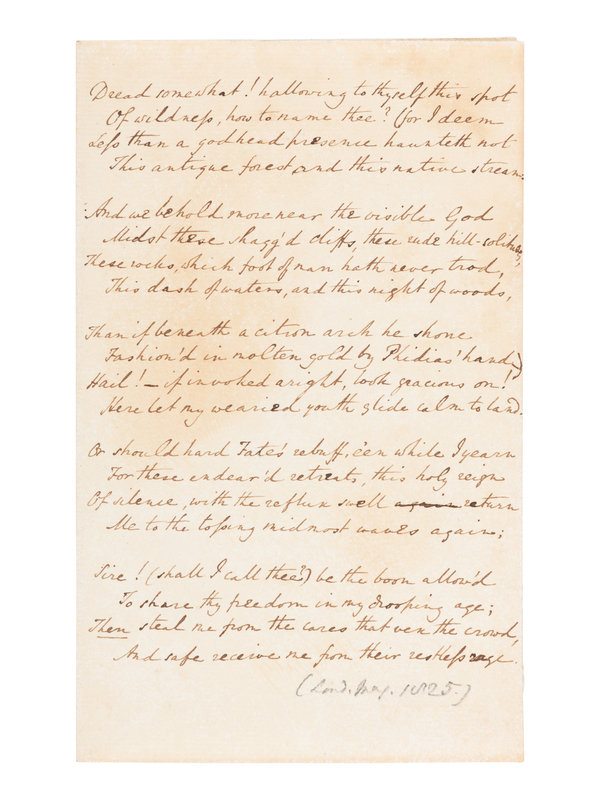 Dread somewhat! hallowing to thyself this spot
Of wildness, how to name thee? (for I deem
Less than a godhead presence haunteth not
This antique forest and this native stream:
And we behold more near the visible God
Midst these shagg'd cliffs, these rude hill-solitudes,
These rocks, which foot of man hath never trod,
This dash of waters, and this night of woods,
Than if beneath a citron arch he shone
Fashion'd in molten gold by Phidias' hand;)
Hail! - if invoked aright, look gracious on!
Here let my wearied youth glide calm to land.
Or should hard Fate's rebuff, e'en while I yearn
For these endear'd retreats, this holy reign
Of silence, with the reflux swell again return
Me to the tossing midmost waves again;
Sire! (shall I call thee?) be the boon allow'd
To share thy freedom in my drooping age;
Then steal me from the cares that vex the crowd,
And safe receive me from their restless rage.
(Lond. Mag. 1825.)